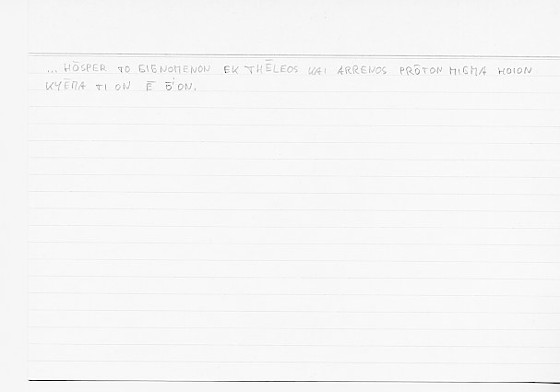 ... HŌSPER TO GIGNOMENON EK THĒLEOS KAI ARRENOS PRŌTON MIGMA HOION
KYĒMA TI ON Ē ŌON.